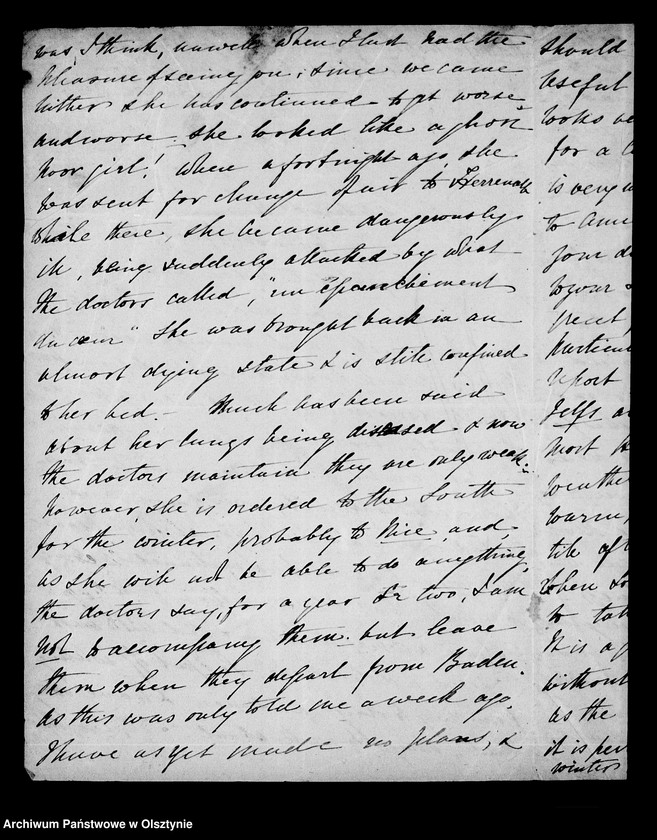 was, I think, unwell when I last had the
pleasure of seeing you; since we came
hither she has continued to get worse
and worse. She looked like a ghost
poor girl! When a fortnight ago, she
was sent for change of air to Herrenalb
While there, she became dangerously
ill, being suddenly attacked by what
the doctors called, "un épanchement
du cœur" She was brought back in an
almost dying state & is still confined
to her bed. – Much has been said
about her lungs being diseased & now
the doctors maintain they are only weak:
however, she is ordered to the South
for the winter, probably to Nice, and,
as she will not be able to do anything,
the doctors say, for a year or two, I am
not to accompany them. but leave
them when they depart from Baden.
As this was only told me a week ago,
I have as yet made no plans, &
should
useful
looks
for a
is very
to
your
to your
great
particu
report
Jelfs
most
weathe
warm,
when
to tak
It is a
without
as the
it is per
winter
Archiwum Państwowe w Olsztynie